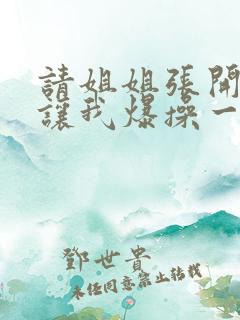 請姐姐張開
讓我爆操一
鄧世貴
未經同意禁止轉載